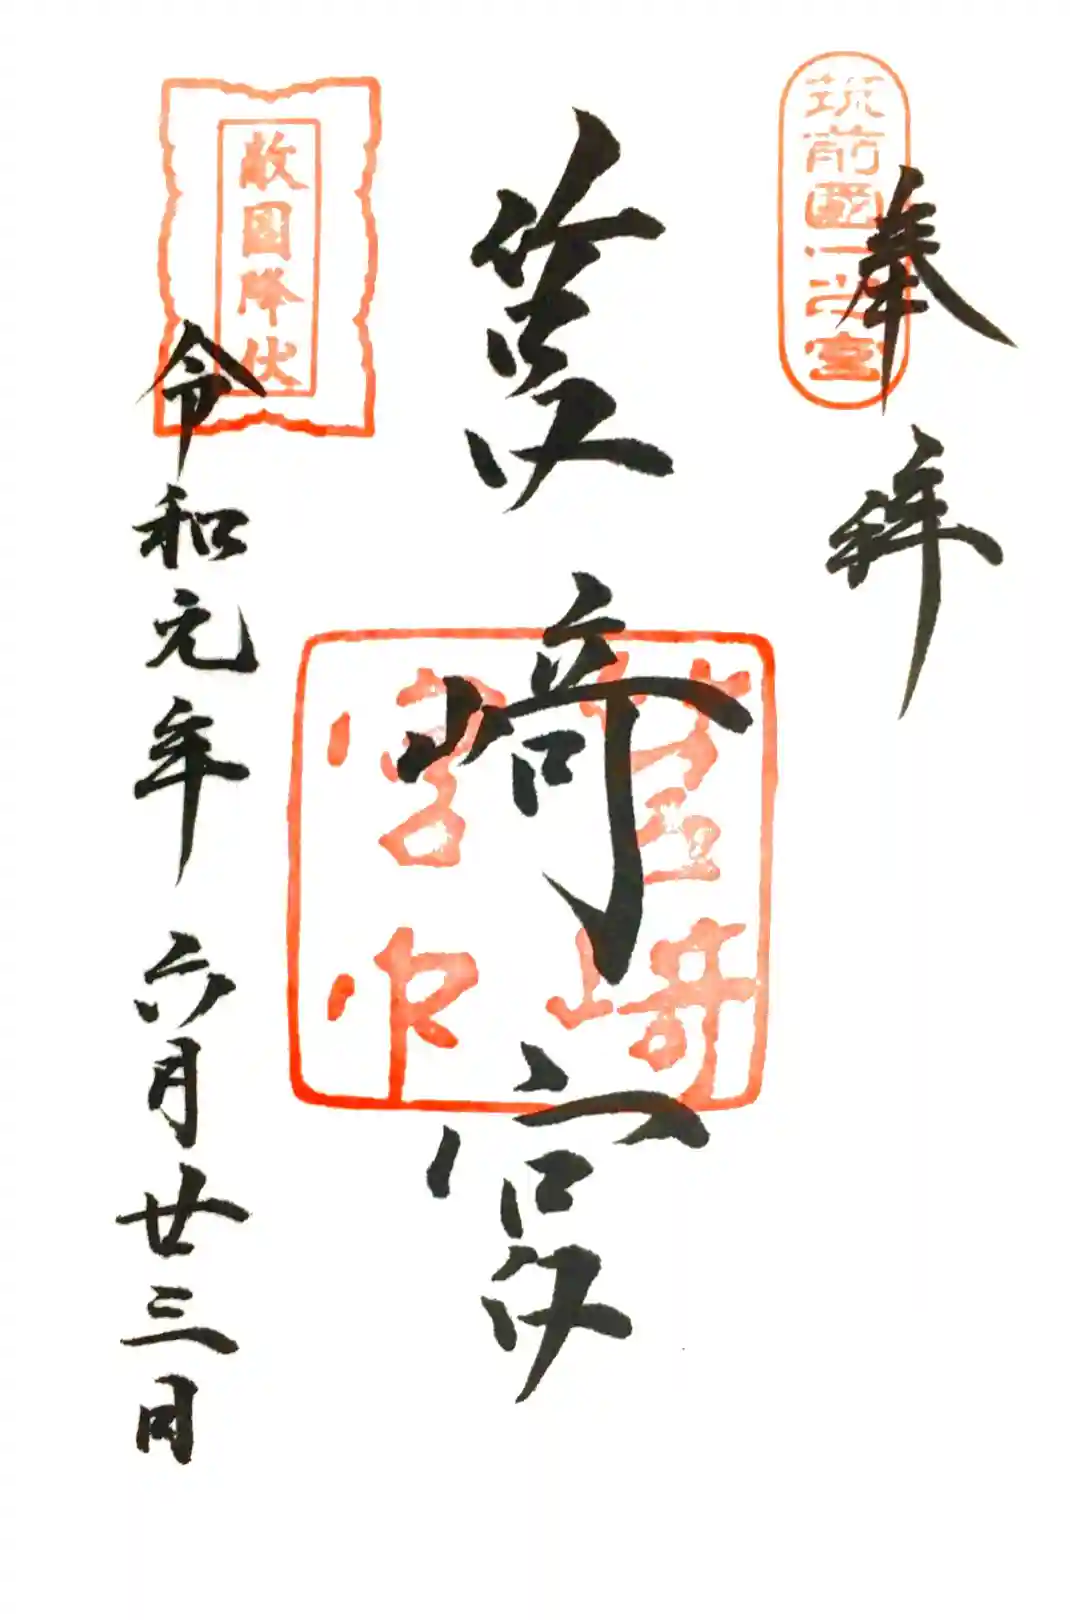 奉拝
筑前國一之宮
筥崎宮
筥崎
宮印
敵國降伏
令和元年 六月廿三日